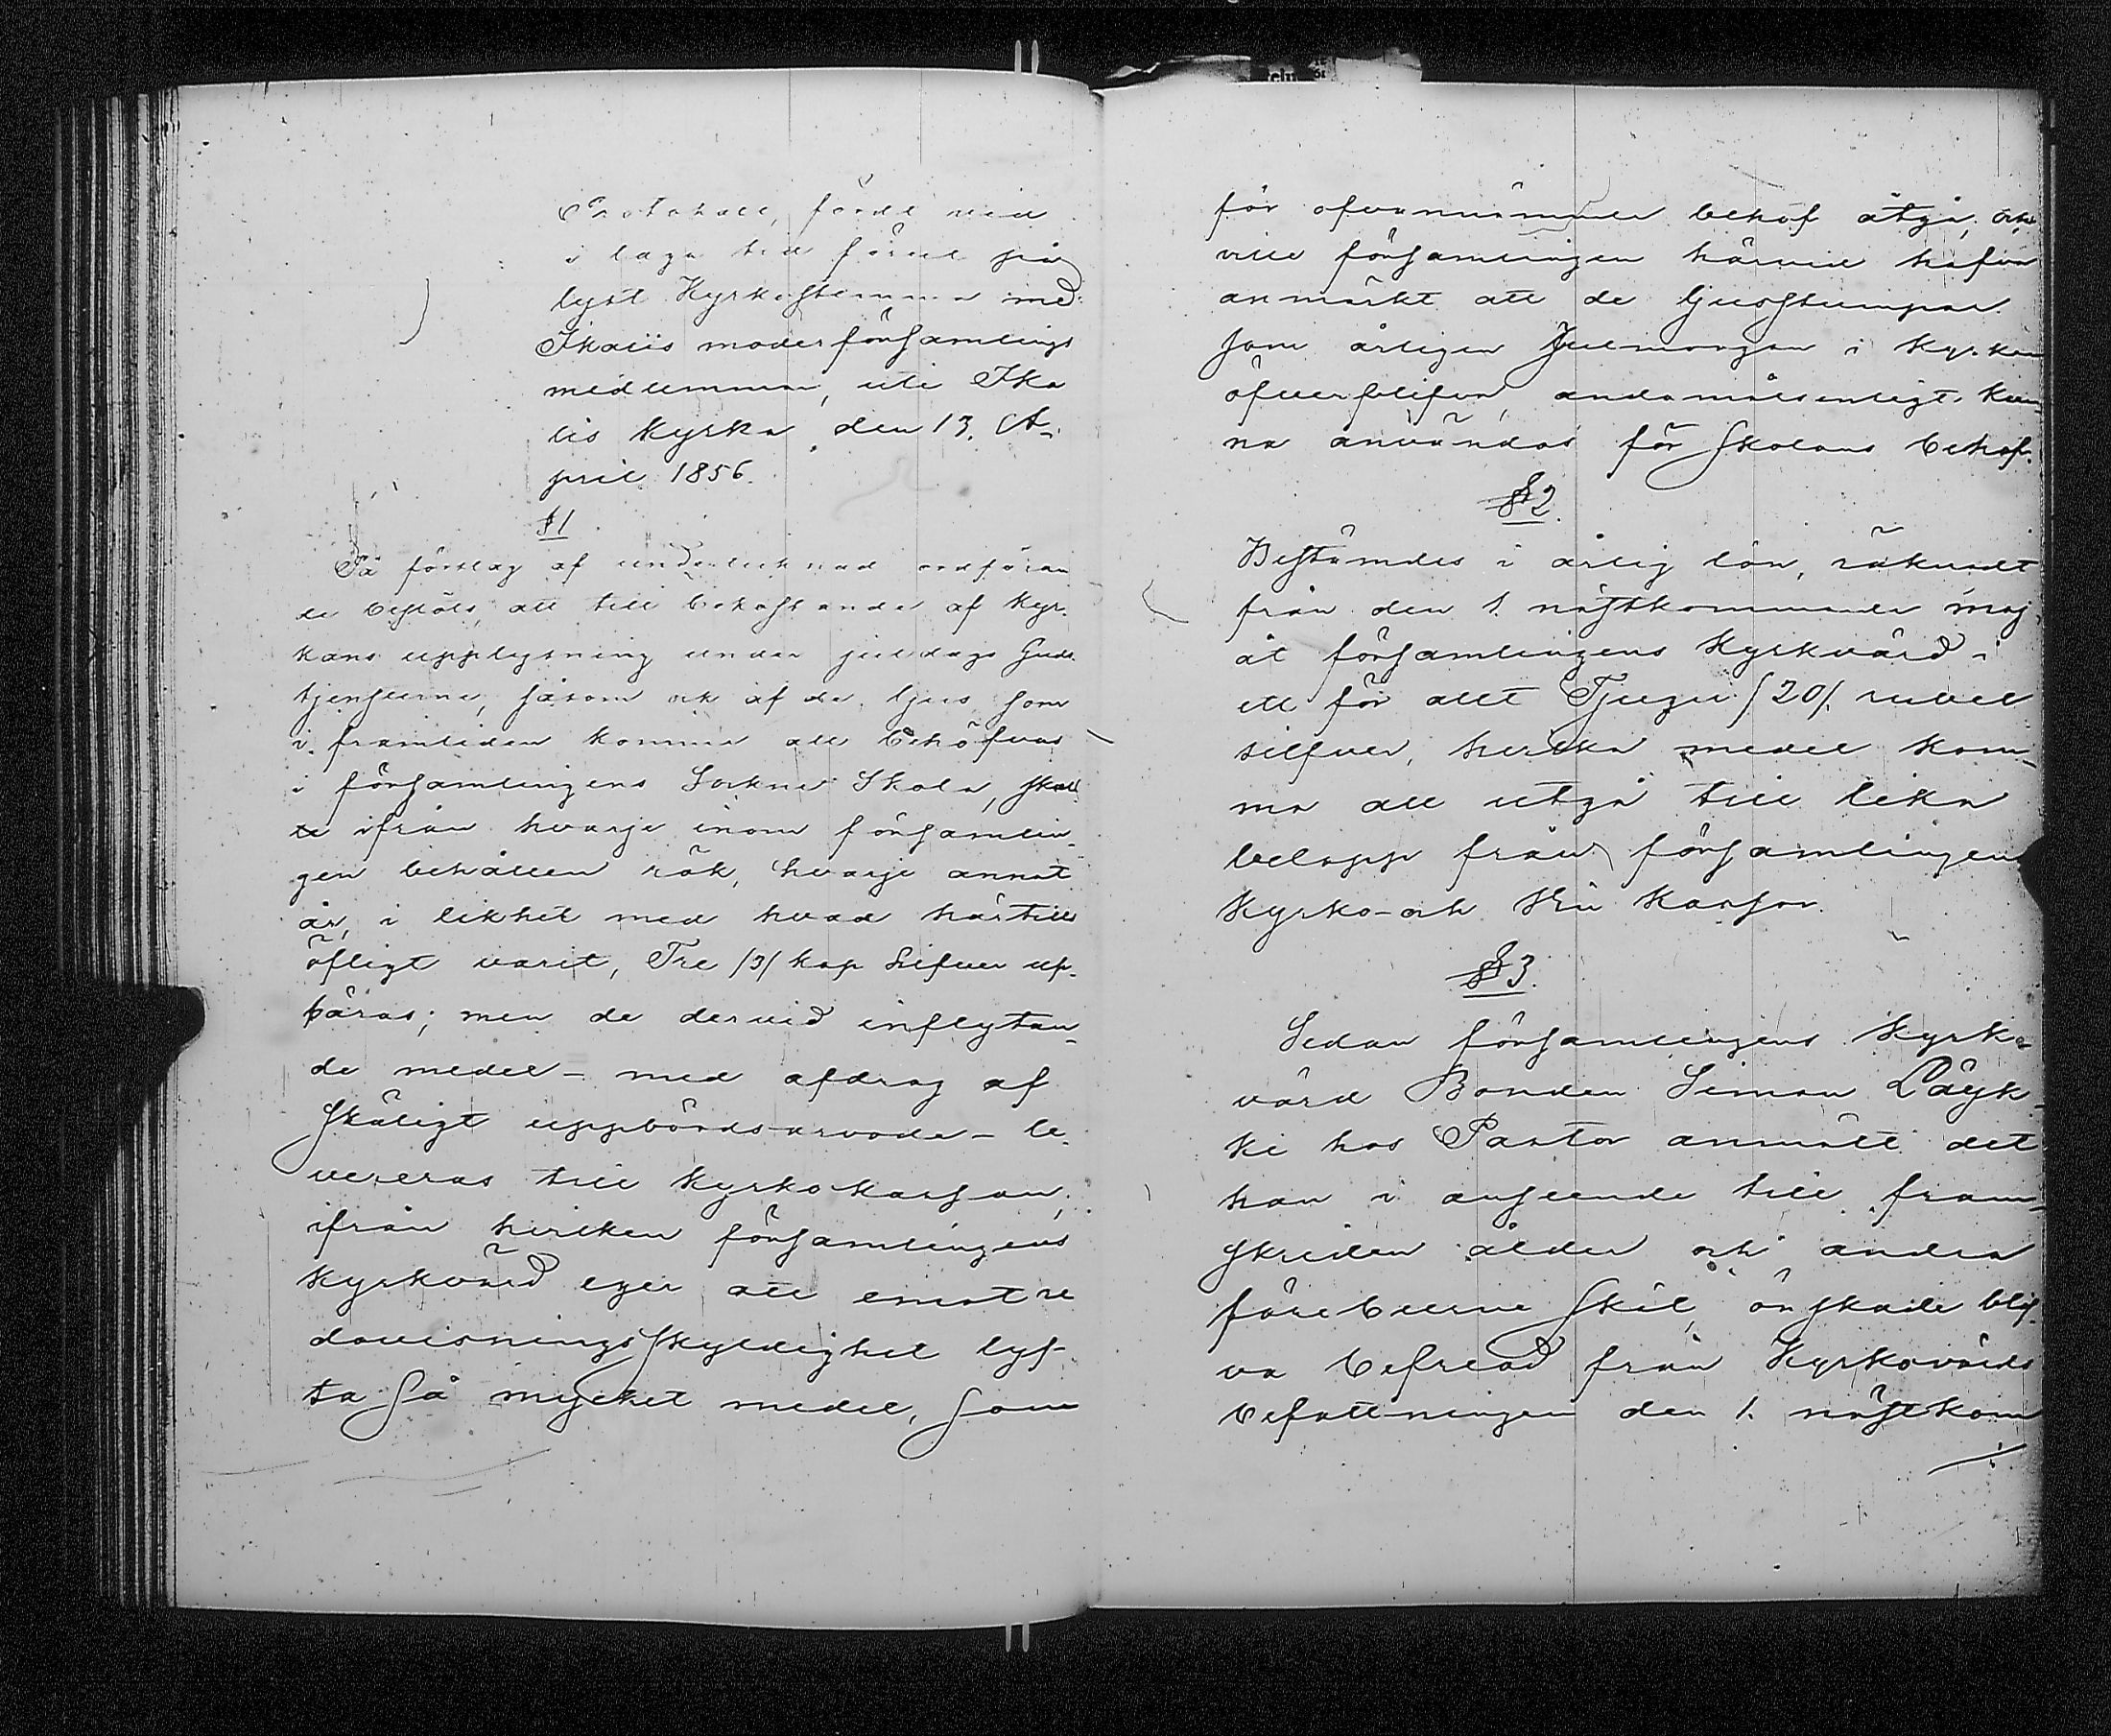 Protokoll, fördt vid
i laga tid förut på
lyst Kyrkostämma med
Ikalis moderförsamlings
medlemmar, uti Ika
lis Kyrka den 13. A-
pril 1856.
§ 1
På förslag af undertecknad ordföran
de beslöts, att till bekostande af Kyr-
kans upplysning under juldags Guds-
tjensterne, såsom ock af de ljus som
i framtiden komma att behöfvas
i församlingens Sockne Skola, skul
le ifrån hvarje inom församlin-
gen behållen rök, hvarje annat
år, i likhet med hvad härtills
öfligt varit, Tre /3/ kop Silfver up-
bäras; men de dervid inflytan-
de medel - med afdrag af
skäligt uppbördsarvode - le-
vereras till Kyrkokassan,
ifrån hvilken församlingens
Kyrkovärd eger att emot re
dovisningsskyldighet lyf-
ta så mycket medel, som
för ofvannämnde behof åtgå, och
vill församlingen härvid hafva
anmärkt att de ljusstumpar
som årligen Julmorgon i Kyrkan
öfverblifva, ändamålsenligt kun-
na användas för Skolans behof.
§ 2.
Bestämdes i årlig lön, räknadt
från den 1. nästkommande maj,
åt församlingens Kyrkvärd i
ett för allt Tjugu /20/. rubel
silfver, hvilka medel kom-
ma att utgå till lika
belopp från församlingens
Kyrko- och Kassor.
§ 3.
Sedan församlingens Kyrko-
värd Bonden Simon Läyk-
ki hos Pastor anmält det
han i anseende till fram-
skriden ålder och andra
föreburne skäl, önskade blif-
va befriad från Kyrkovärds
befattningen den 1. nästkom